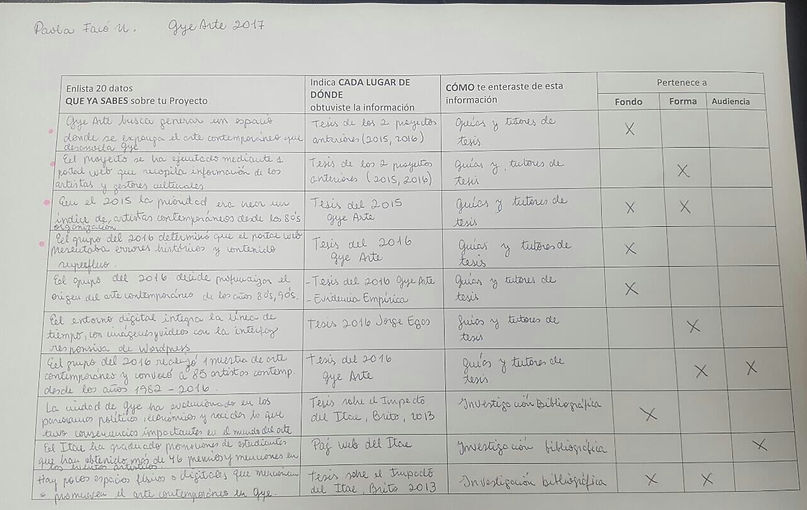 Paola Faió U. Gye Arte 2017
Enlista 20 datos
QUE YA SABES sobre tu Proyecto
Indica CADA LUGAR DE
DÓNDE
obtuviste la información
CÓMO te enteraste de esta
información
Pertenece a
Fondo Forma Audiencia
Gye Arte busca generar un espacio
donde se exponga el arte contemporáneo que
desarrolla Gye
Tesis de los 2 proyectos
anteriores (2015, 2016)
Guías y tutores de
tesis
X
El proyecto se ha ejecutado mediante 1
portal web que recopila información de los
artistas y gestores culturales
Tesis de los 2 proyectos
anteriores (2015, 2016)
Guías y tutores de
tesis
X
En el 2015 la prioridad era crear un
índice de artistas contemporáneos desde los 80's
organización
Tesis del 2015
Gye Arte
Guías y tutores de
tesis
X X
El grupo del 2016 determinó que el portal web
presentaba errores históricos y contenido
superfluo.
Tesis del 2016
Gye Arte
Guías y tutores de
tesis
X
El grupo del 2016 decide profundizar el
origen del arte contemporáneo de los años 80's, 90's.
- Tesis del 2016 Gye Arte
- Evidencia Empírica
Guías y tutores de
tesis
X
El entorno digital integra la línea de
tiempo, con imágenes y videos con la interfaz
responsiva de Wordpress
Tesis 2016 Jorge Egas
Guías y tutores de
tesis
X
El grupo del 2016 realizó 1 muestra de arte
contemporáneo y convocó a 85 artistas contemp.
desde los años 1982 - 2016.
Tesis del 2016
Gye Arte
Guías y tutores de
tesis
X X
La ciudad de Gye ha evolucionado en los
panoramas políticos económicos y sociales lo que
tuvo consecuencias impactantes en el mundo del arte
Tesis sobre el Impacto
del Itae, Brito, 2013
Investigación Bibliográfica
X
El Itae ha graduado promociones de estudiantes
que han obtenido más de 46 premios y menciones en
los eventos artísticos
Pág web del Itae
Investigación bibliográfica
X
Hay pocos espacios físicos o digitales que mencionan
o promueven el arte contemporáneo en Gye.
Tesis sobre el Impacto
del Itae, Brito 2013
Investigación bibliográfica
X X